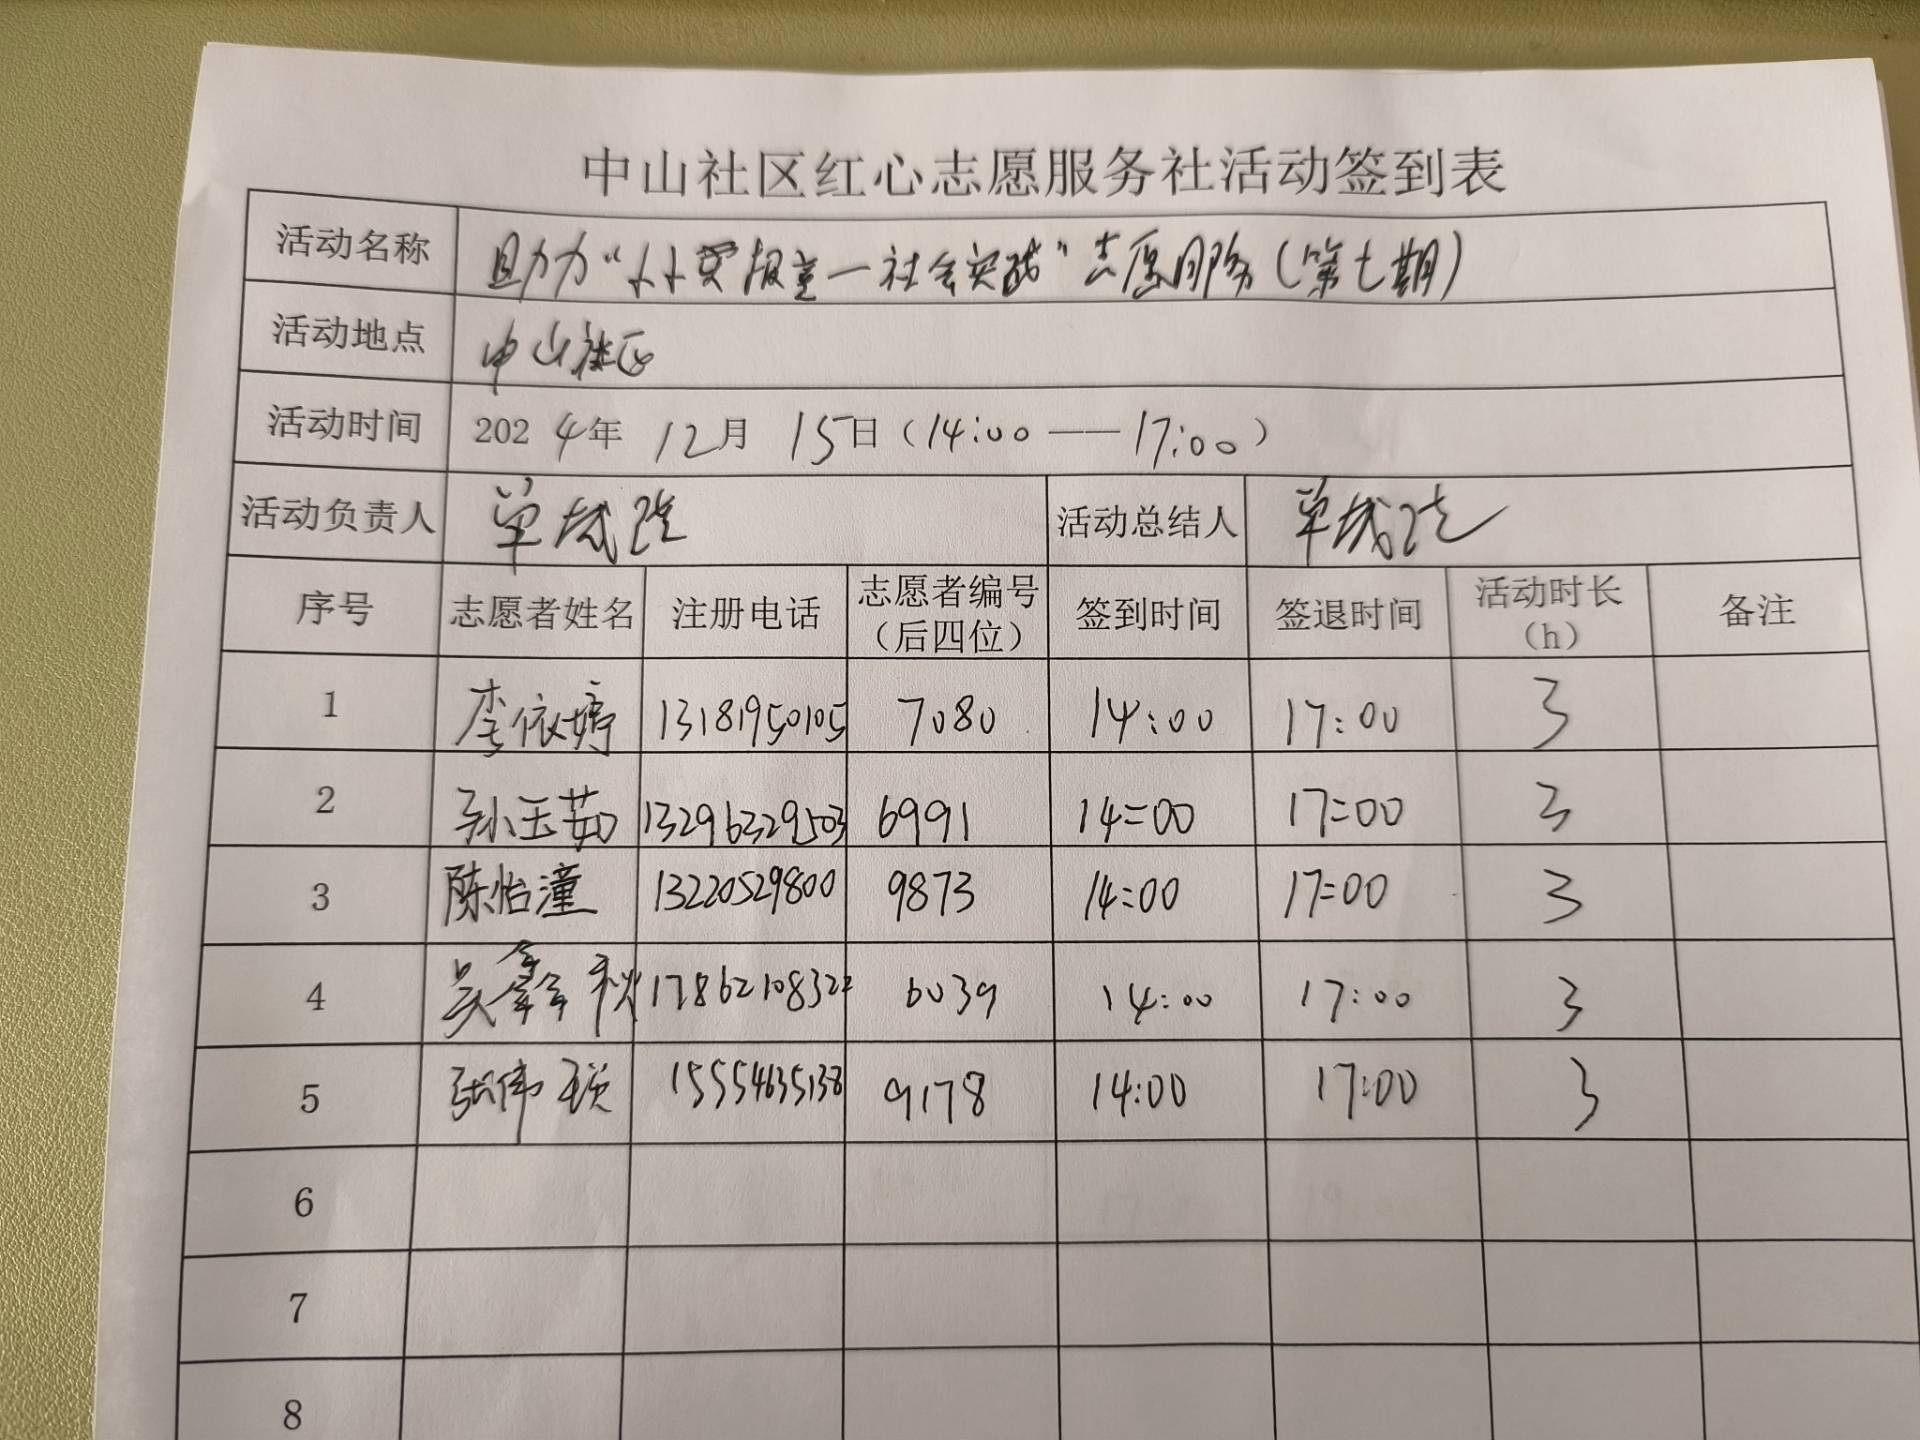 中山社区红心志愿服务社活动签到表
活动名称 助力“小小 社会实践”志愿服务(第七期)
活动地点 中山社区
活动时间 2024年 12月 15日（14:00 —— 17:00）
活动负责人 单 活动总结人 单
序号 志愿者姓名 注册电话 志愿者编号（后四位） 签到时间 签退时间 活动时长（h） 备注
1 李依婷 13181950105 7080 14:00 17:00 3
2 孙玉茹 13296329503 6991 14:00 17:00 3
3 陈怡潼 13220529800 9873 14:00 17:00 3
4 吴鑫秋 6039 14:00 17:00 3
5 张伟 15554635138 9178 14:00 17:00 3
6
7
8